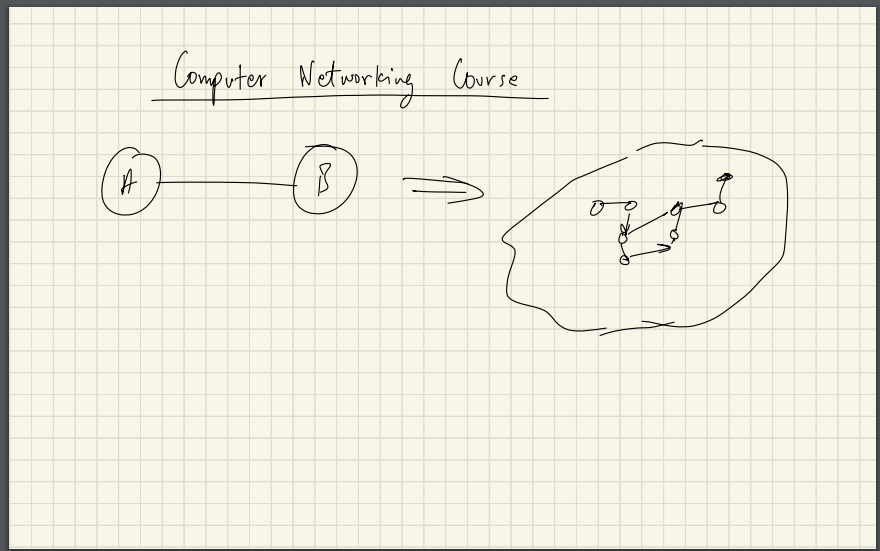 Computer Networking Course
A B